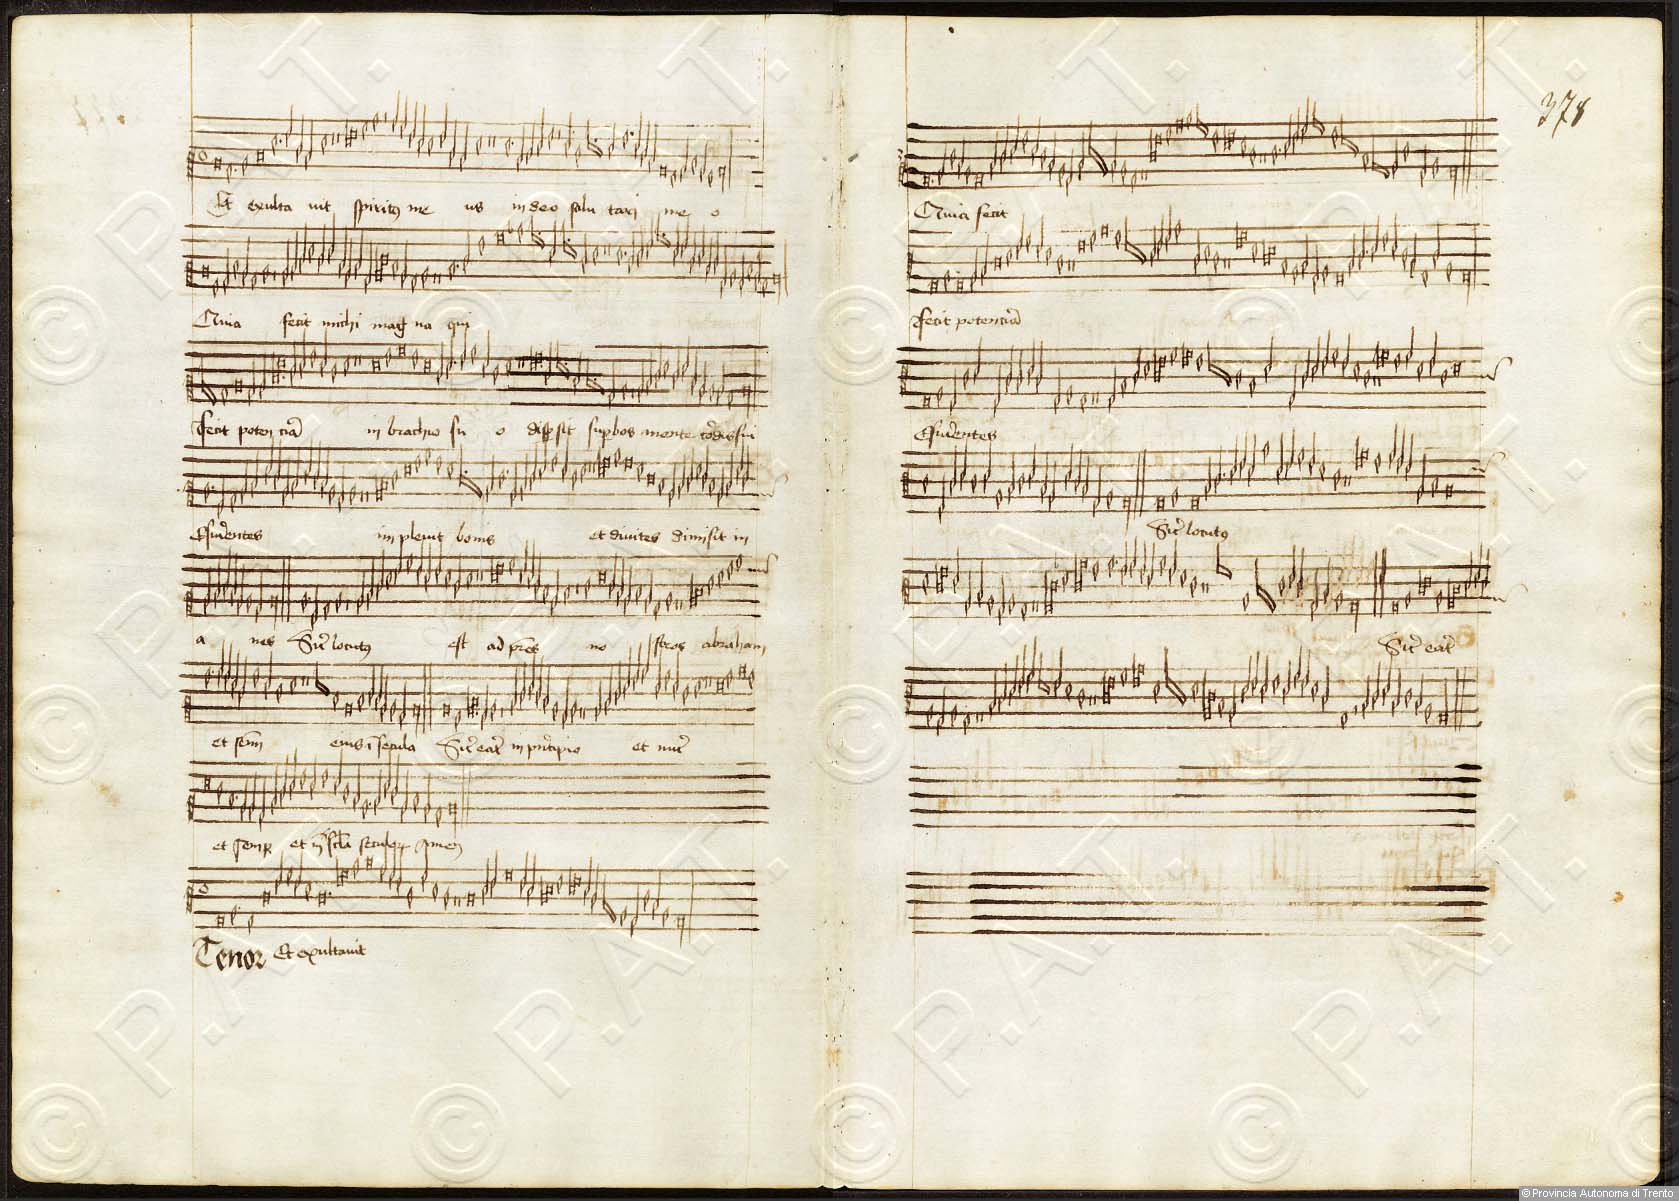 Et exulta vit spiritus me us in deo salu tari me o
Quia fecit michi mag na qui
Fecit poten ciam in brachio su o dispsit supbos mente cordis sui
Esurientes im plevit bonis et divites dimisit in
a nes Sicut locutus est ad pres no stros abraham
et semi eius i secula Sicut erat in pncipio et nuc
et semp et in secla seculorum Amen
Tenor Et exultavit
378
Quia fecit
Fecit potenciam
Esurientes
Sicut locutus
Sicut erat
© Provincia Autonoma di Trento